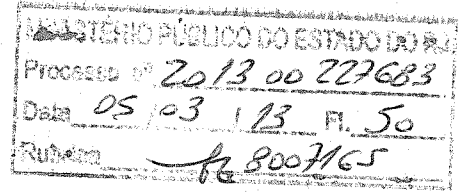 MINISTÉRIO PÚBLICO DO ESTADO DO
Processo nº 2013 00 227683
Data 05 / 03 / 13 Fl. 50
Rubrica 8007165